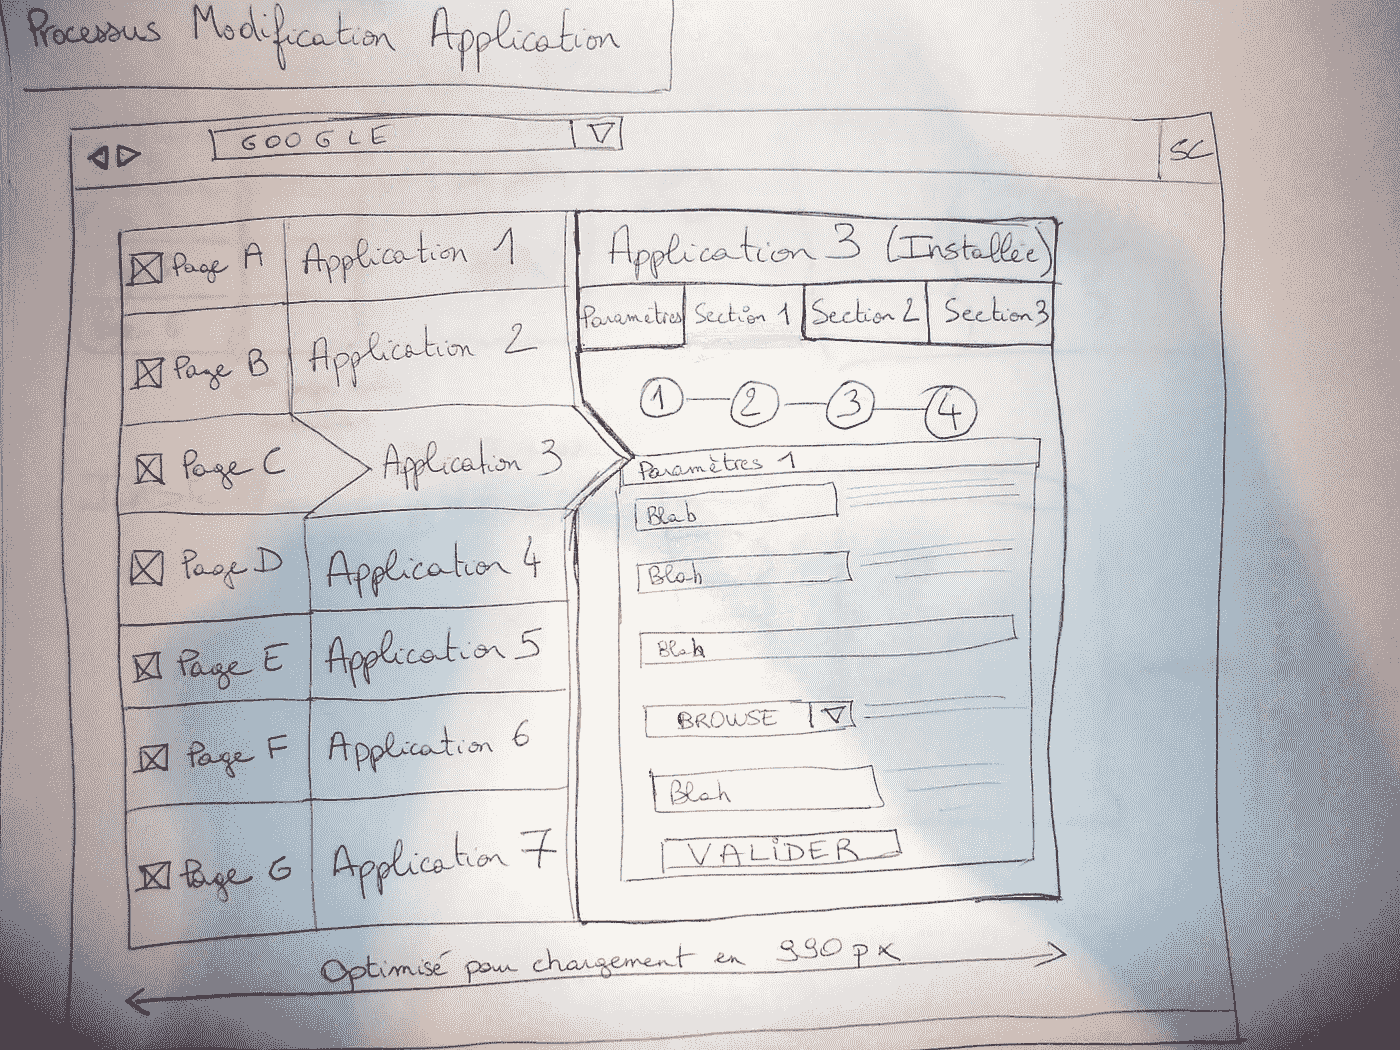 Processus Modification Application
GOOGLE
SC
Page A
Application 1
Page B
Application 2
Page C
Application 3
Page D
Application 4
Page E
Application 5
Page F
Application 6
Page G
Application 7
Application 3 (Installée)
Paramètres Section 1 Section 2 Section 3
1 2 3 4
Paramètres 1
Blab
Blah
Blah
BROWSE
Blah
VALIDER
Optimisé pour chargement en 990 px